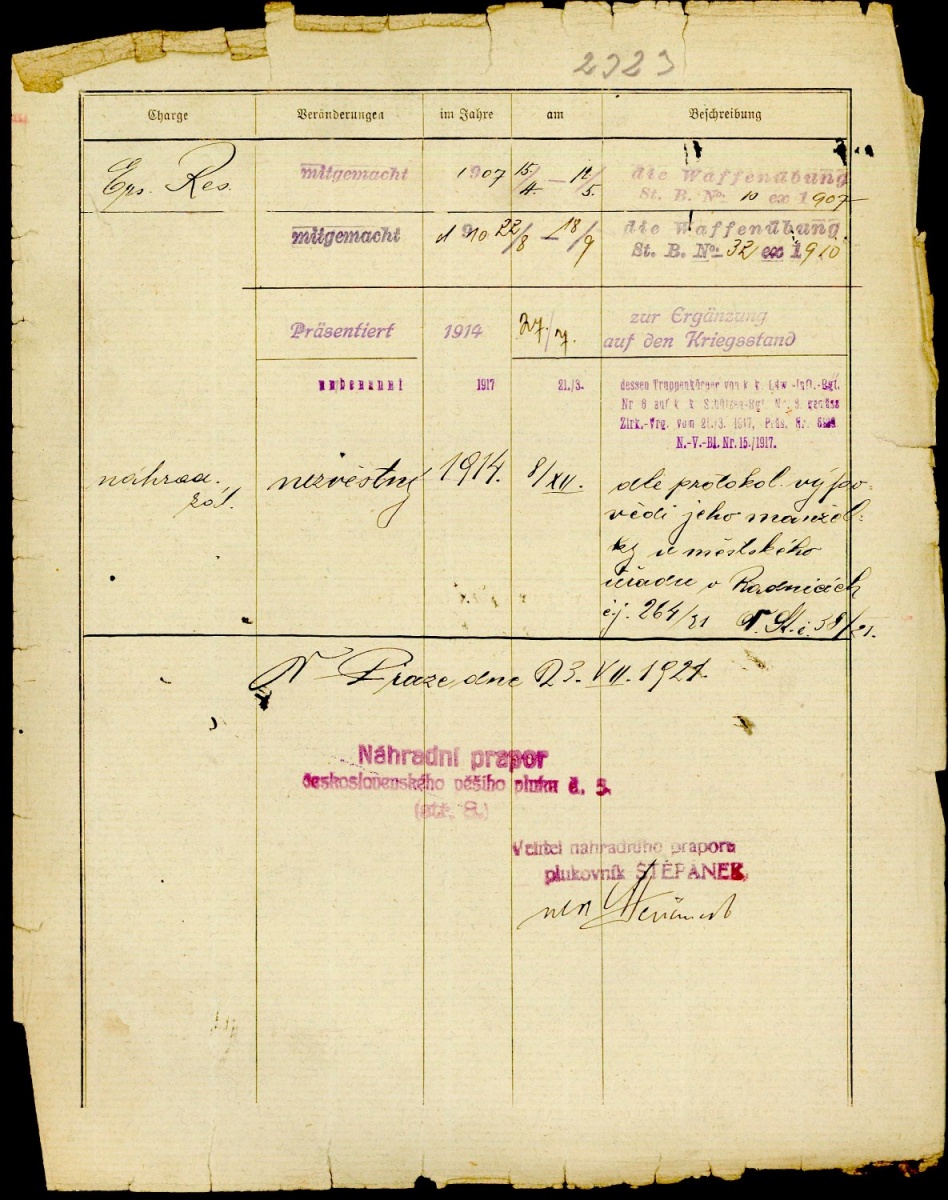 2323
Charge Veränderungen im Jahre am Beschreibung
Ers. Res. mitgemacht 1907 15/4 — 12/5. die Waffenübung
St. B. No. 10 ex 1907
mitgemacht 1910 22/8 — 18/9 die Waffenübung
St. B. No. 32 ex 1910
Präsentiert 1914 27/7. zur Ergänzung
auf den Kriegsstand
unbenannt 1917 21./3. dessen Truppenkörper von k. k. Ldw.-Inft.-Rgt.
Nr 8 auf k. k. Schützen-Rgt. Nr. 8. gemäss
Zirk.-Vrg. vom 21./3. 1917, Präs. Nr.
N.-V.-Bl. Nr. 15./1917.
náhrad. zál. nezvěstný 1914. 8/XII. dle protokol. výpo-
vědi jeho manžel-
ky u městského
úřadu v Radnicích
čj. 264/21 V. St. č. 58/21.
V Praze dne 23. VII. 1921.
Náhradní prapor
československého pěšího pluku č. 5.
(stř. 8.)
Velitel náhradního praporu
plukovník ŠTĚPÁNEK